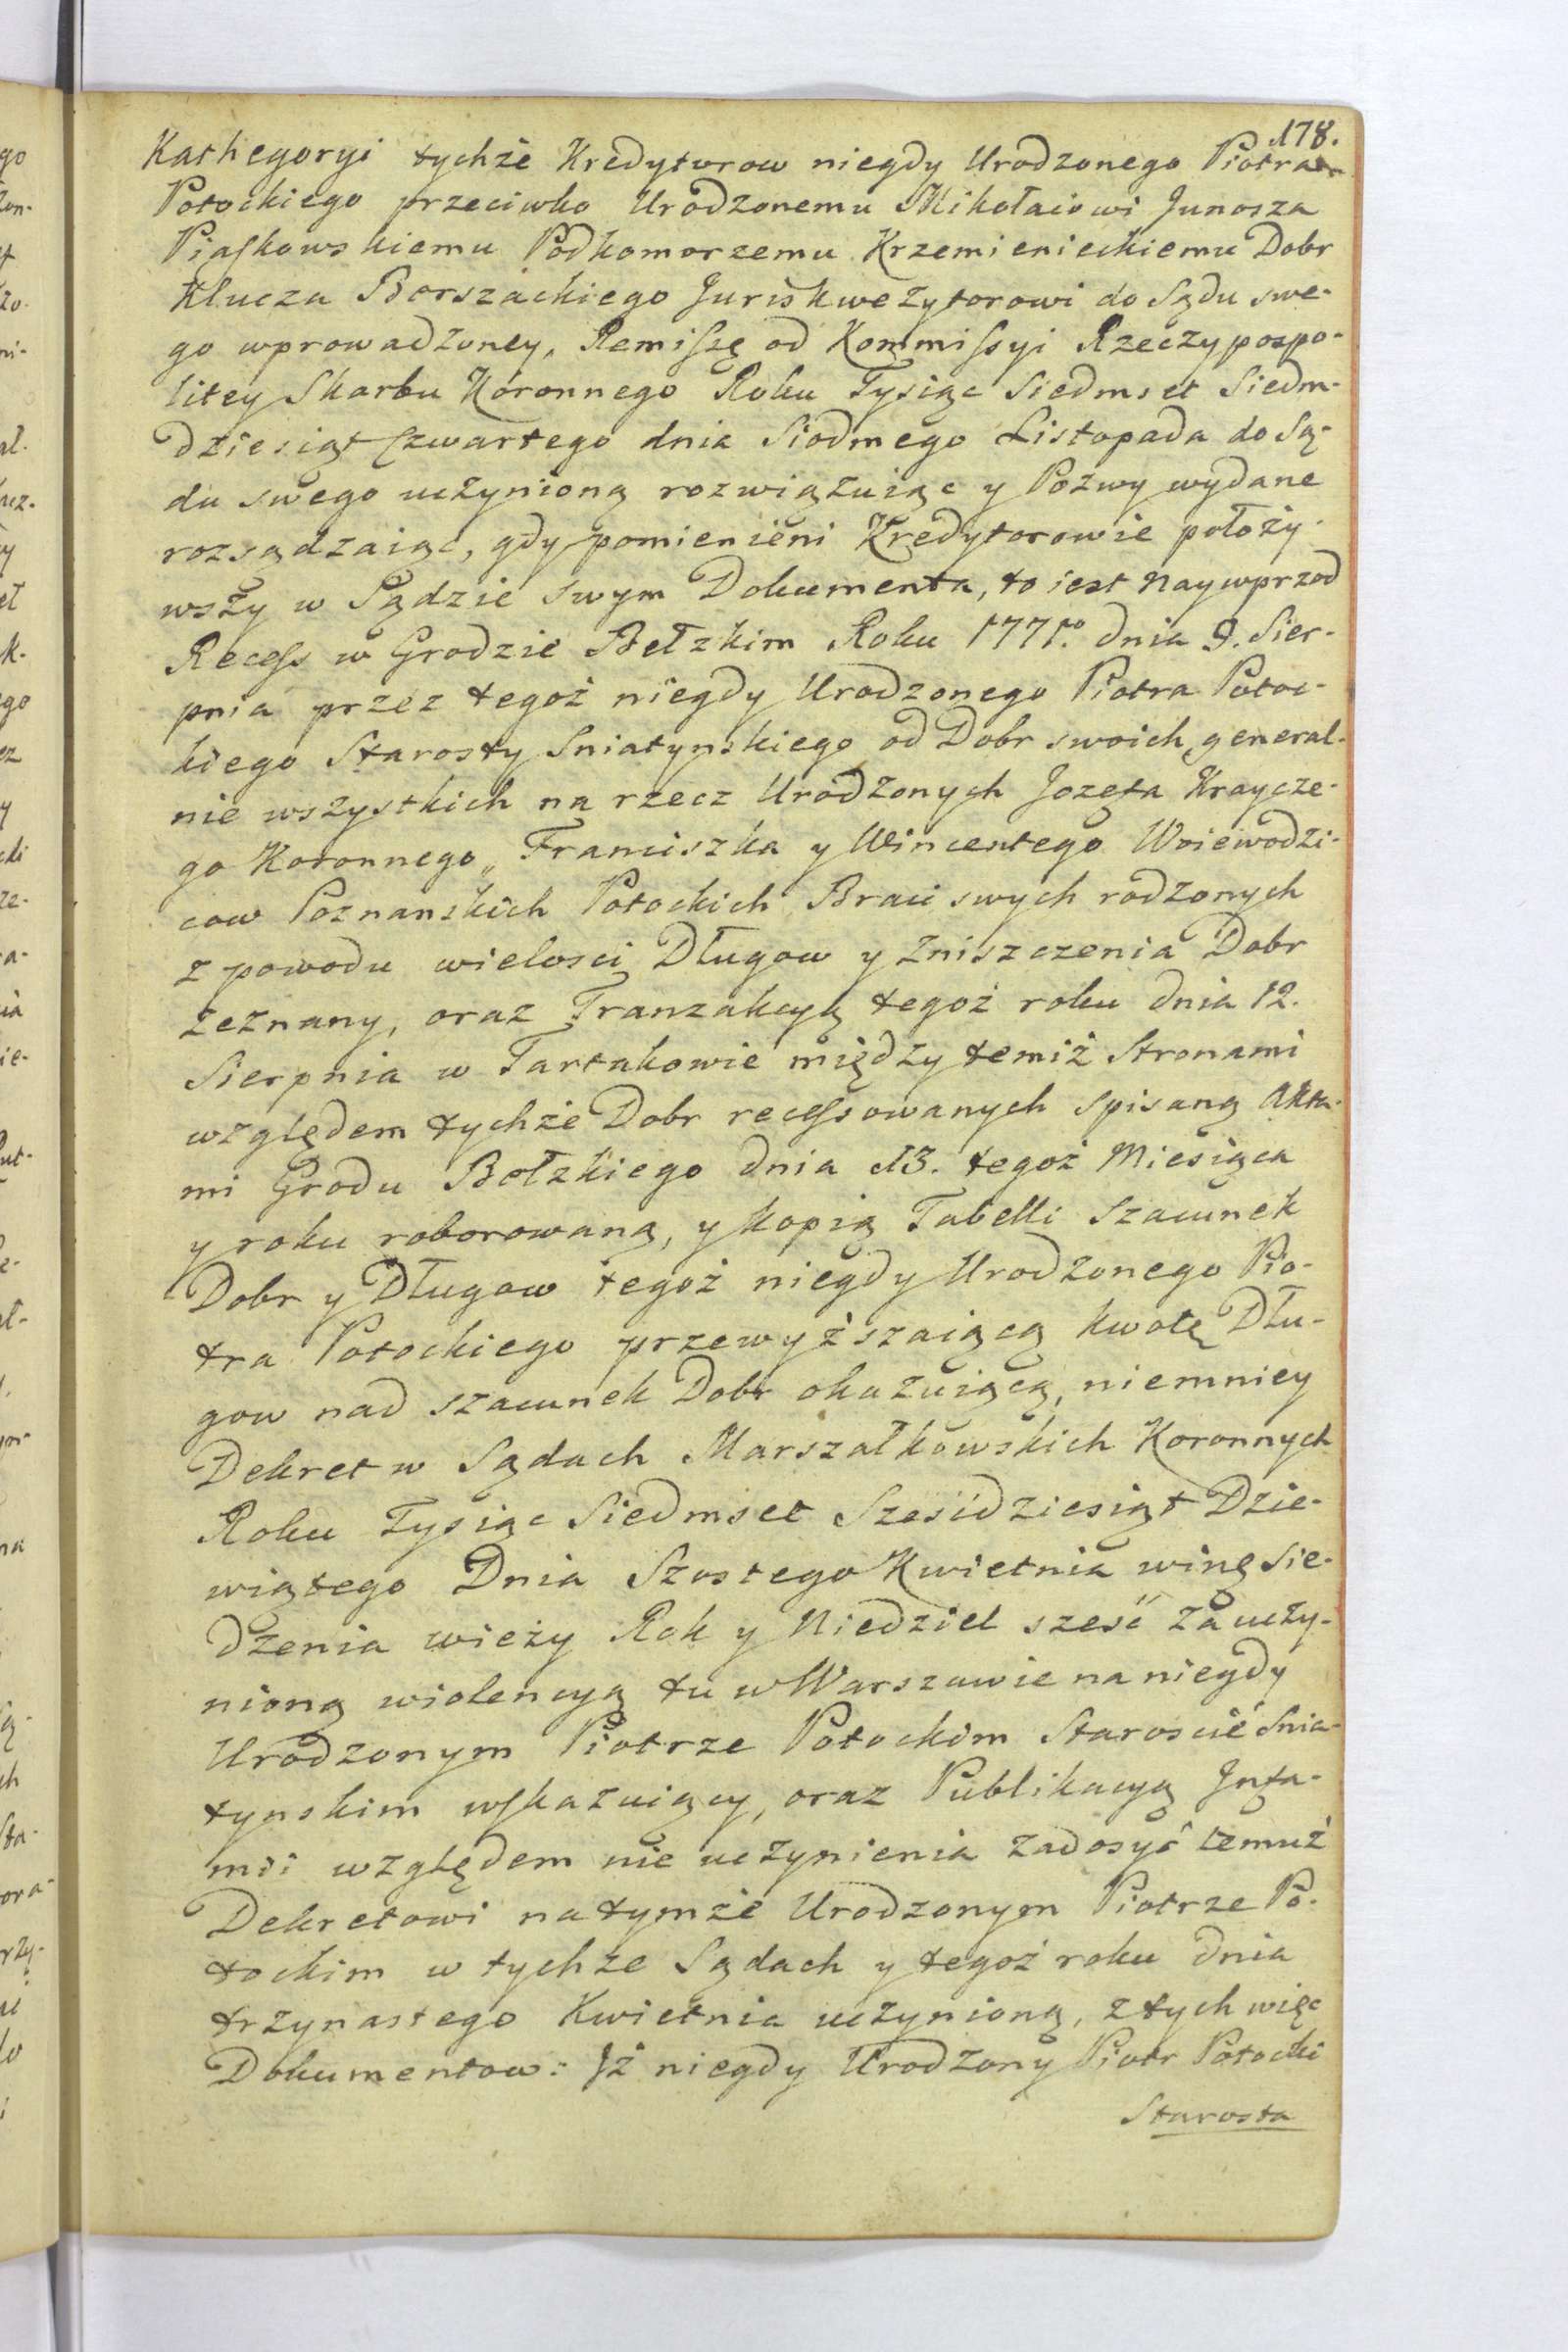 178.
Kathegoryi tychże Kredytorow niegdy Urodzonego Piotra
Potockiego przeciwko Urodzonemu Mikołaiowi Junosza
Piaskowskiemu Podkomorzemu Krzemienieckiemu Dobr
Klucza Borszackiego Juriskwezytorowi do Sądu swe-
go wprowadzoney, Remissę od Kommissyi Rzeczypospo-
litey Skarbu Koronnego Roku Tysiąc Siedmset Siedm-
dziesiąt Czwartego dnia Siodmego Listopada do Są-
du swego uczynioną rozwiązuiąc y Pozwy wydane
rozsądzaiąc, gdy pomienieni Kredytorowie położy-
wszy w Sądzie swym Dokumenta, to iest Naywprzod
Recess w Grodzie Bełzkim Roku 1771º. dnia 9. Sier-
pnia przez tegoż niegdy Urodzonego Piotra Potoc-
kiego Starosty Sniatynskiego od Dobr swoich general-
nie wszystkich na rzecz Urodzonych Jozefa Kraycze-
go Koronnego, Franciszka y Wincentego Woiewodzi-
cow Poznanskich Potockich Braci swych rodzonych
z powodu wielosci Długow y Zniszczenia Dobr
zeznany, oraz Tranzakcyą tegoż roku dnia 12.
Sierpnia w Tartakowie między temiż Stronami
względem tychże Dobr recessowanych spisaną Akta-
mi Grodu Bełzkiego dnia 13. tegoż Miesiąca
y roku roborowaną, y kopią Tabelli Szacunek
Dobr y Długow tegoż niegdy Urodzonego Pio-
tra Potockiego przewyższaiącą kwotę Dłu-
gow nad szacunek Dobr okazuiącą, niemniey
Dekret w Sądach Marszałkowskich Koronnych
Roku Tysiąc Siedmset Szesćdziesiąt Dzie-
wiątego Dnia Szostego Kwietnia winę Sie-
dzenia wieży Rok y Niedziel szesć za uczy-
nioną wiolencyą tu w Warszawie na niegdy
Urodzonym Piotrze Potockim Staroscie Snia-
tynskim wskazuiący, oraz Publikacyą Jnfa-
mii względem nie uczynienia zadosyć temuż
Dekretowi na tymże Urodzonym Piotrze Po-
tockim w tychże Sądach y tegoż roku dnia
trzynastego Kwietnia uczynioną, z tych więc
Dokumentow: Jż niegdy Urodzony Piotr Potocki
Starosta